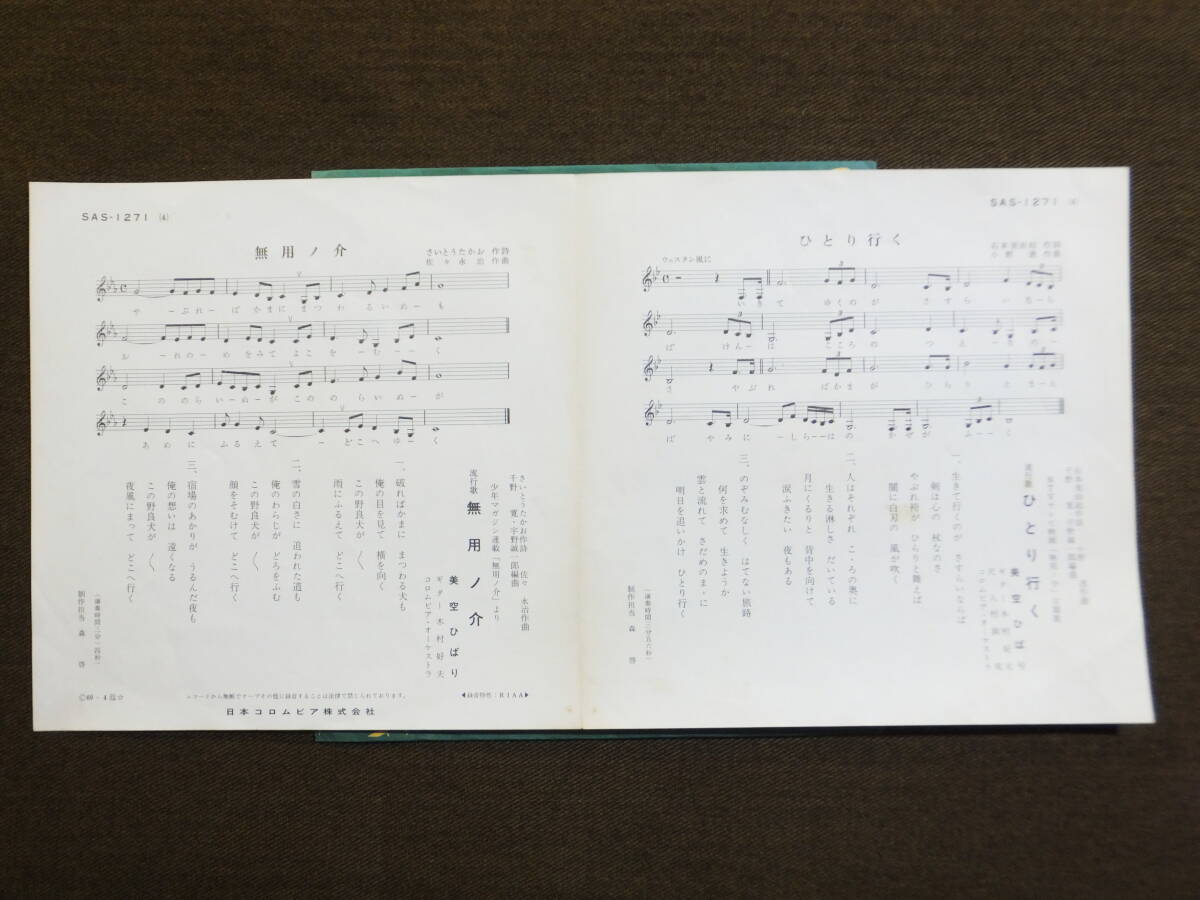 SAS-1271 (4)
無用ノ介
さいとうたかお 作詩
佐々永治 作曲
やーぶれーばかまにまつわるいぬーも
おーれのーめをみてよこをーむーーく
こののらいぬーがこののらいぬーが
あめにふるえてーどこへゆーく
さいとうたかお作詩 佐々 永治作曲
千野 寛・宇野誠一郎編曲
少年マガジン連載「無用ノ介」より
流行歌 無用ノ介
美空ひばり
ギター 木村好夫
コロムビア・オーケストラ
一、破ればかまに まつわる犬も
俺の目を見て 横を向く
この野良犬が 〱
雨にふるえて どこへ行く
二、雪の白さに 追われた道も
俺のわらじが どろをふむ
この野良犬が 〱
顔をそむけて どこへ行く
三、宿場のあかりが うるんだ夜も
俺の想いは 遠くなる
この野良犬が 〱
夜風にまって どこへ行く
(演奏時間三分一四秒)
制作担当 森 啓
Ⓒ69・4
レコードから無断でテープその他に録音することは法律で禁じられております。
◀録音特性:RIAA▶
日本コロムビア株式会社
SAS-1271
ひとり行く
小野 作曲
ウェスタン風に
いきてゆくのがさすらいなーら
ばけんーはこころのつえーきのー
さやぶればかまがひらりとまーえ
ばやみにーしらーーはのかぜがふーく
流行歌 ひとり行く
美空ひばり
コロムビア・オーケストラ
一、生きて行くのが さすらいならば
剣は心の 杖なのさ
やぶれ袴が ひらりと舞えば
闇に白刃の 風が吹く
二、人はそれぞれ こゝろの奥に
生きる淋しさ だいている
月にくるりと 背中を向けて
涙ふきたい 夜もある
三、のぞみむなしく はてない旅路
何を求めて 生きようか
雲と流れて さだめのまゝに
明日を追いかけ ひとり行く
(演奏時間三分五六秒)
制作担当 森 啓